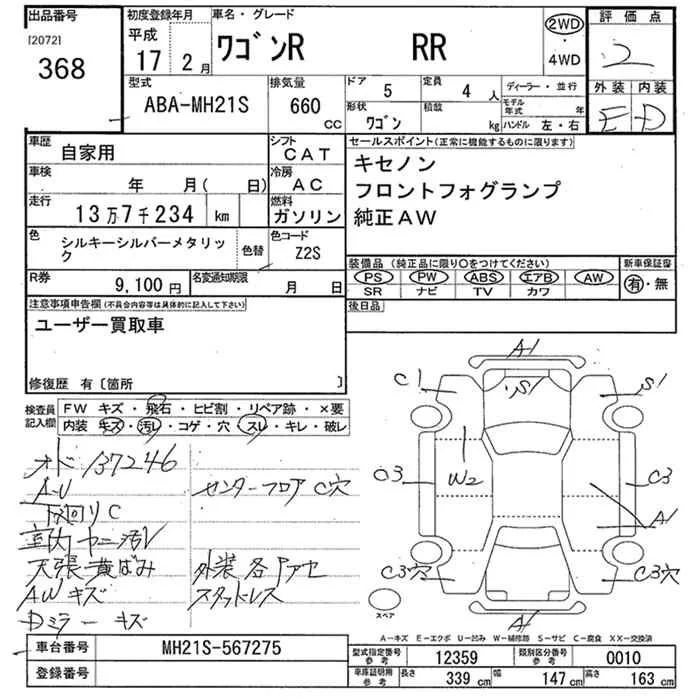 出品番号
[2072]
368
初度登録年月
平成
17 2月
車名・グレード
ワゴンR RR
2WD
・
4WD
評価点
2
外装 内装
E D
型式
ABA-MH21S
排気量
660 CC
ドア
5
定員
4 人
形状
ワゴン
積載
kg
ディーラー・並行
モデル年式 年
ハンドル 左・右
車歴
自家用
シフト
CAT
車検
年 月( 日)
冷房
AC
走行
13万7千234 km
燃料
ガソリン
色
シルキーシルバーメタリック
色替
色コード
Z2S
R券
9,100円
名変通知期限
月 日
セールスポイント(正常に機能するものに限ります)
キセノン
フロントフォグランプ
純正AW
装備品 (純正品に限り○をつけてください)
PS PW ABS エアB AW
SR ナビ TV カワ
新車保証書
有・無
後日品
注意事項申告欄(不具合内容等は具体的に記入して下さい)
ユーザー買取車
修復歴 有〔箇所 〕
検査員記入欄
FW キズ・飛石・ヒビ割・リペア跡・×要
内装 キズ・汚レ・コゲ・穴・スレ・キレ・破レ
オド 137246
A-U
センターフロア C穴
下回り C
室内 ヤニ 汚レ
天張 黄ばみ
外装 各 アセ
AW キズ
スタッドレス
Dミラー キズ
A1
C1
S1
S1
C3
W2
C3
A1
C3穴
C3穴
A1
スペア
A-キズ E-エクボ U-凹み W-補修跡 S-サビ C-腐食 XX-交換済
車台番号
MH21S-567275
登録番号
型式指定番号 参考
12359
類別区分番号 参考
0010
車庫証明用 参考
長さ 339 cm
幅 147 cm
高さ 163 cm